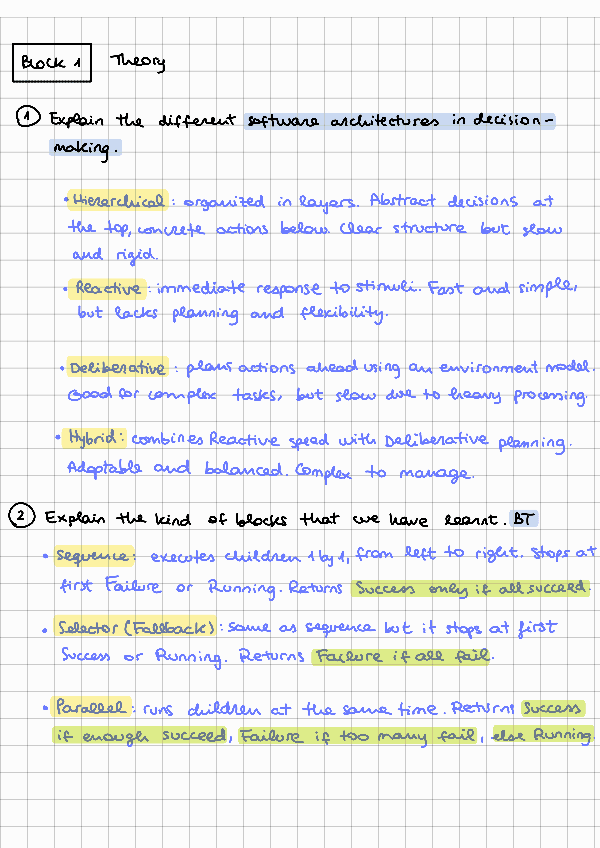 Block 1 Theory
1 Explain the different software architectures in decision-
making.
• Hierarchical: organized in layers. Abstract decisions at
the top, concrete actions below. Clear structure but slow
and rigid.
• Reactive: immediate response to stimuli. Fast and simple,
but lacks planning and flexibility.
• Deliberative: plans actions ahead using an environment model.
Good for complex tasks, but slow due to heavy processing.
• Hybrid: combines Reactive speed with Deliberative planning.
Adaptable and balanced. Complex to manage.
2 Explain the kind of blocks that we have learnt. BT
• Sequence: executes children 1 by 1, from left to right. Stops at
first Failure or Running. Returns Success only if all succeed.
• Selector (Fallback): same as sequence but it stops at first
Success or Running. Returns Failure if all fail.
• Parallel: runs children at the same time. Returns Success
if enough succeed, Failure if too many fail, else Running.